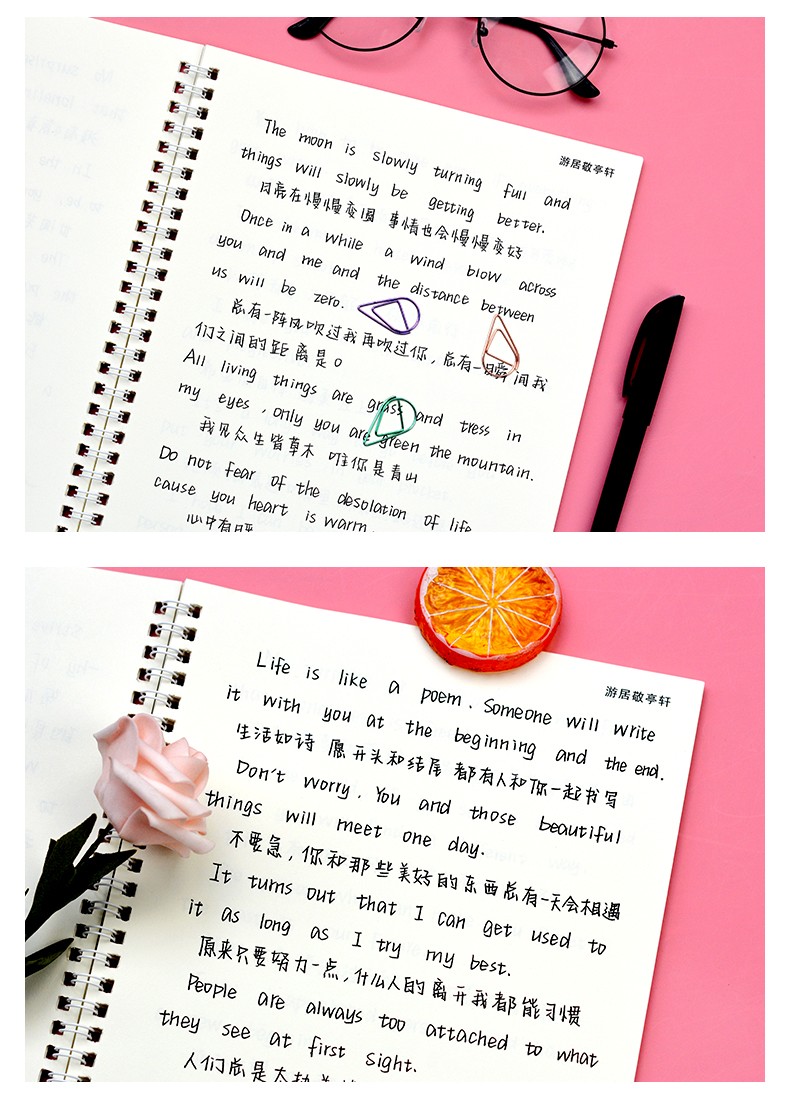 游居敬亭轩
The moon is slowly turning full and
things will slowly be getting better.
月亮在慢慢变圆 事情也会慢慢变好
Once in a while a wind blow across
you and me and the distance between
us will be zero.
总有一阵风吹过我再吹过你，总有一瞬间我
们之间的距离是0
All living things are grass and tress in
my eyes , only you are green the mountain.
我见众生皆草木 唯你是青山
Do not fear of the desolation of life
cause you heart is warm.
心中有
游居敬亭轩
Life is like a poem . Someone will write
it with you at the beginning and the end.
生活如诗 愿开头和结尾 都有人和你一起书写
Don't worry . You and those beautiful
things will meet one day.
不要急，你和那些美好的东西总有一天会相遇
It turns out that I can get used to
it as long as I try my best.
原来只要努力一点，什么人的离开我都能习惯
People are always too attached to what
they see at first sight.
人们总是太